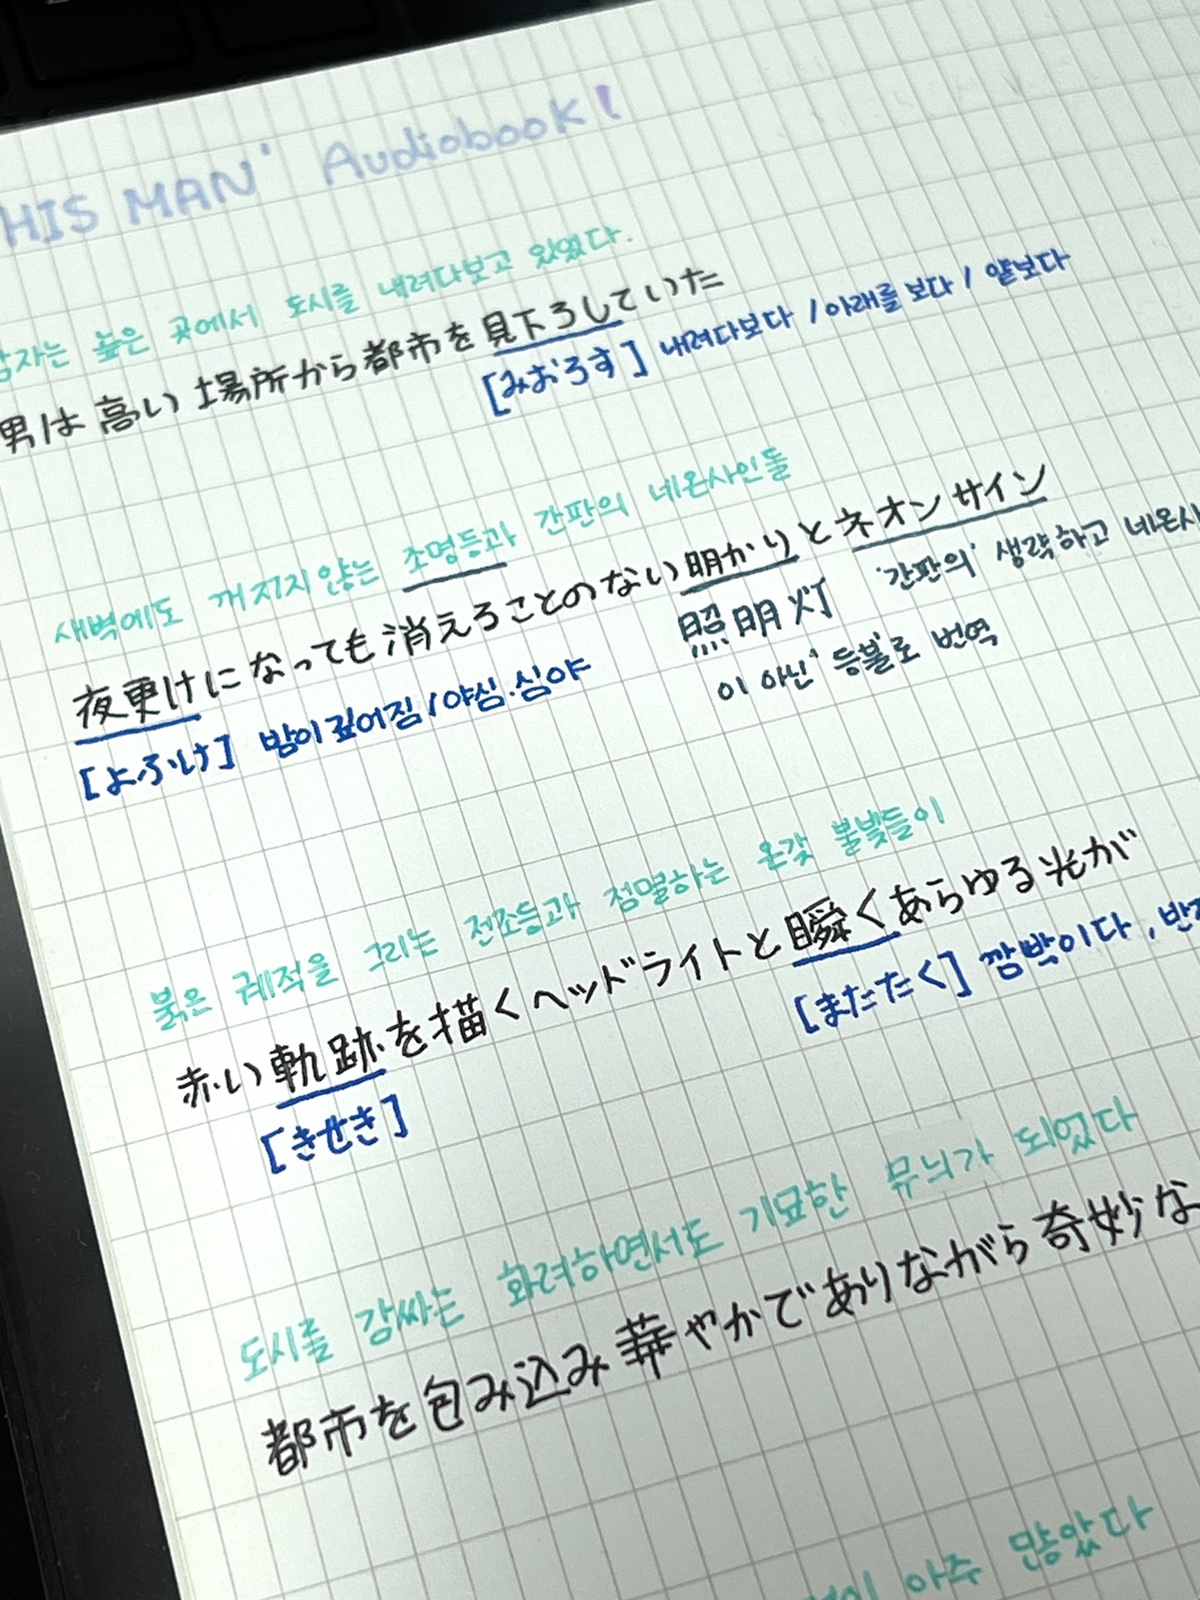 HIS MAN' Audiobook!
남자는 높은 곳에서 도시를 내려다보고 있었다.
男は高い場所から都市を見下ろしていた
[みおろす] 내려다보다 / 아래를 보다 / 얕보다
새벽에도 꺼지지 않는 조명등과 간판의 네온사인들
夜更けになっても消えることのない明かりとネオンサイン
[よふけ] 밤이 깊어짐 / 야심.심야
照明灯
'간판의' 생략하고 네온사
이 아닌 '등불'로 번역
붉은 궤적을 그리는 전조등과 점멸하는 온갖 불빛들이
赤い軌跡を描くヘッドライトと瞬くあらゆる光が
[きせき]
[またたく] 깜박이다, 반
도시를 감싸는 화려하면서도 기묘한 뮤늬가 되었다
都市を包み込み華やかでありながら奇妙な
이 아주 많았다